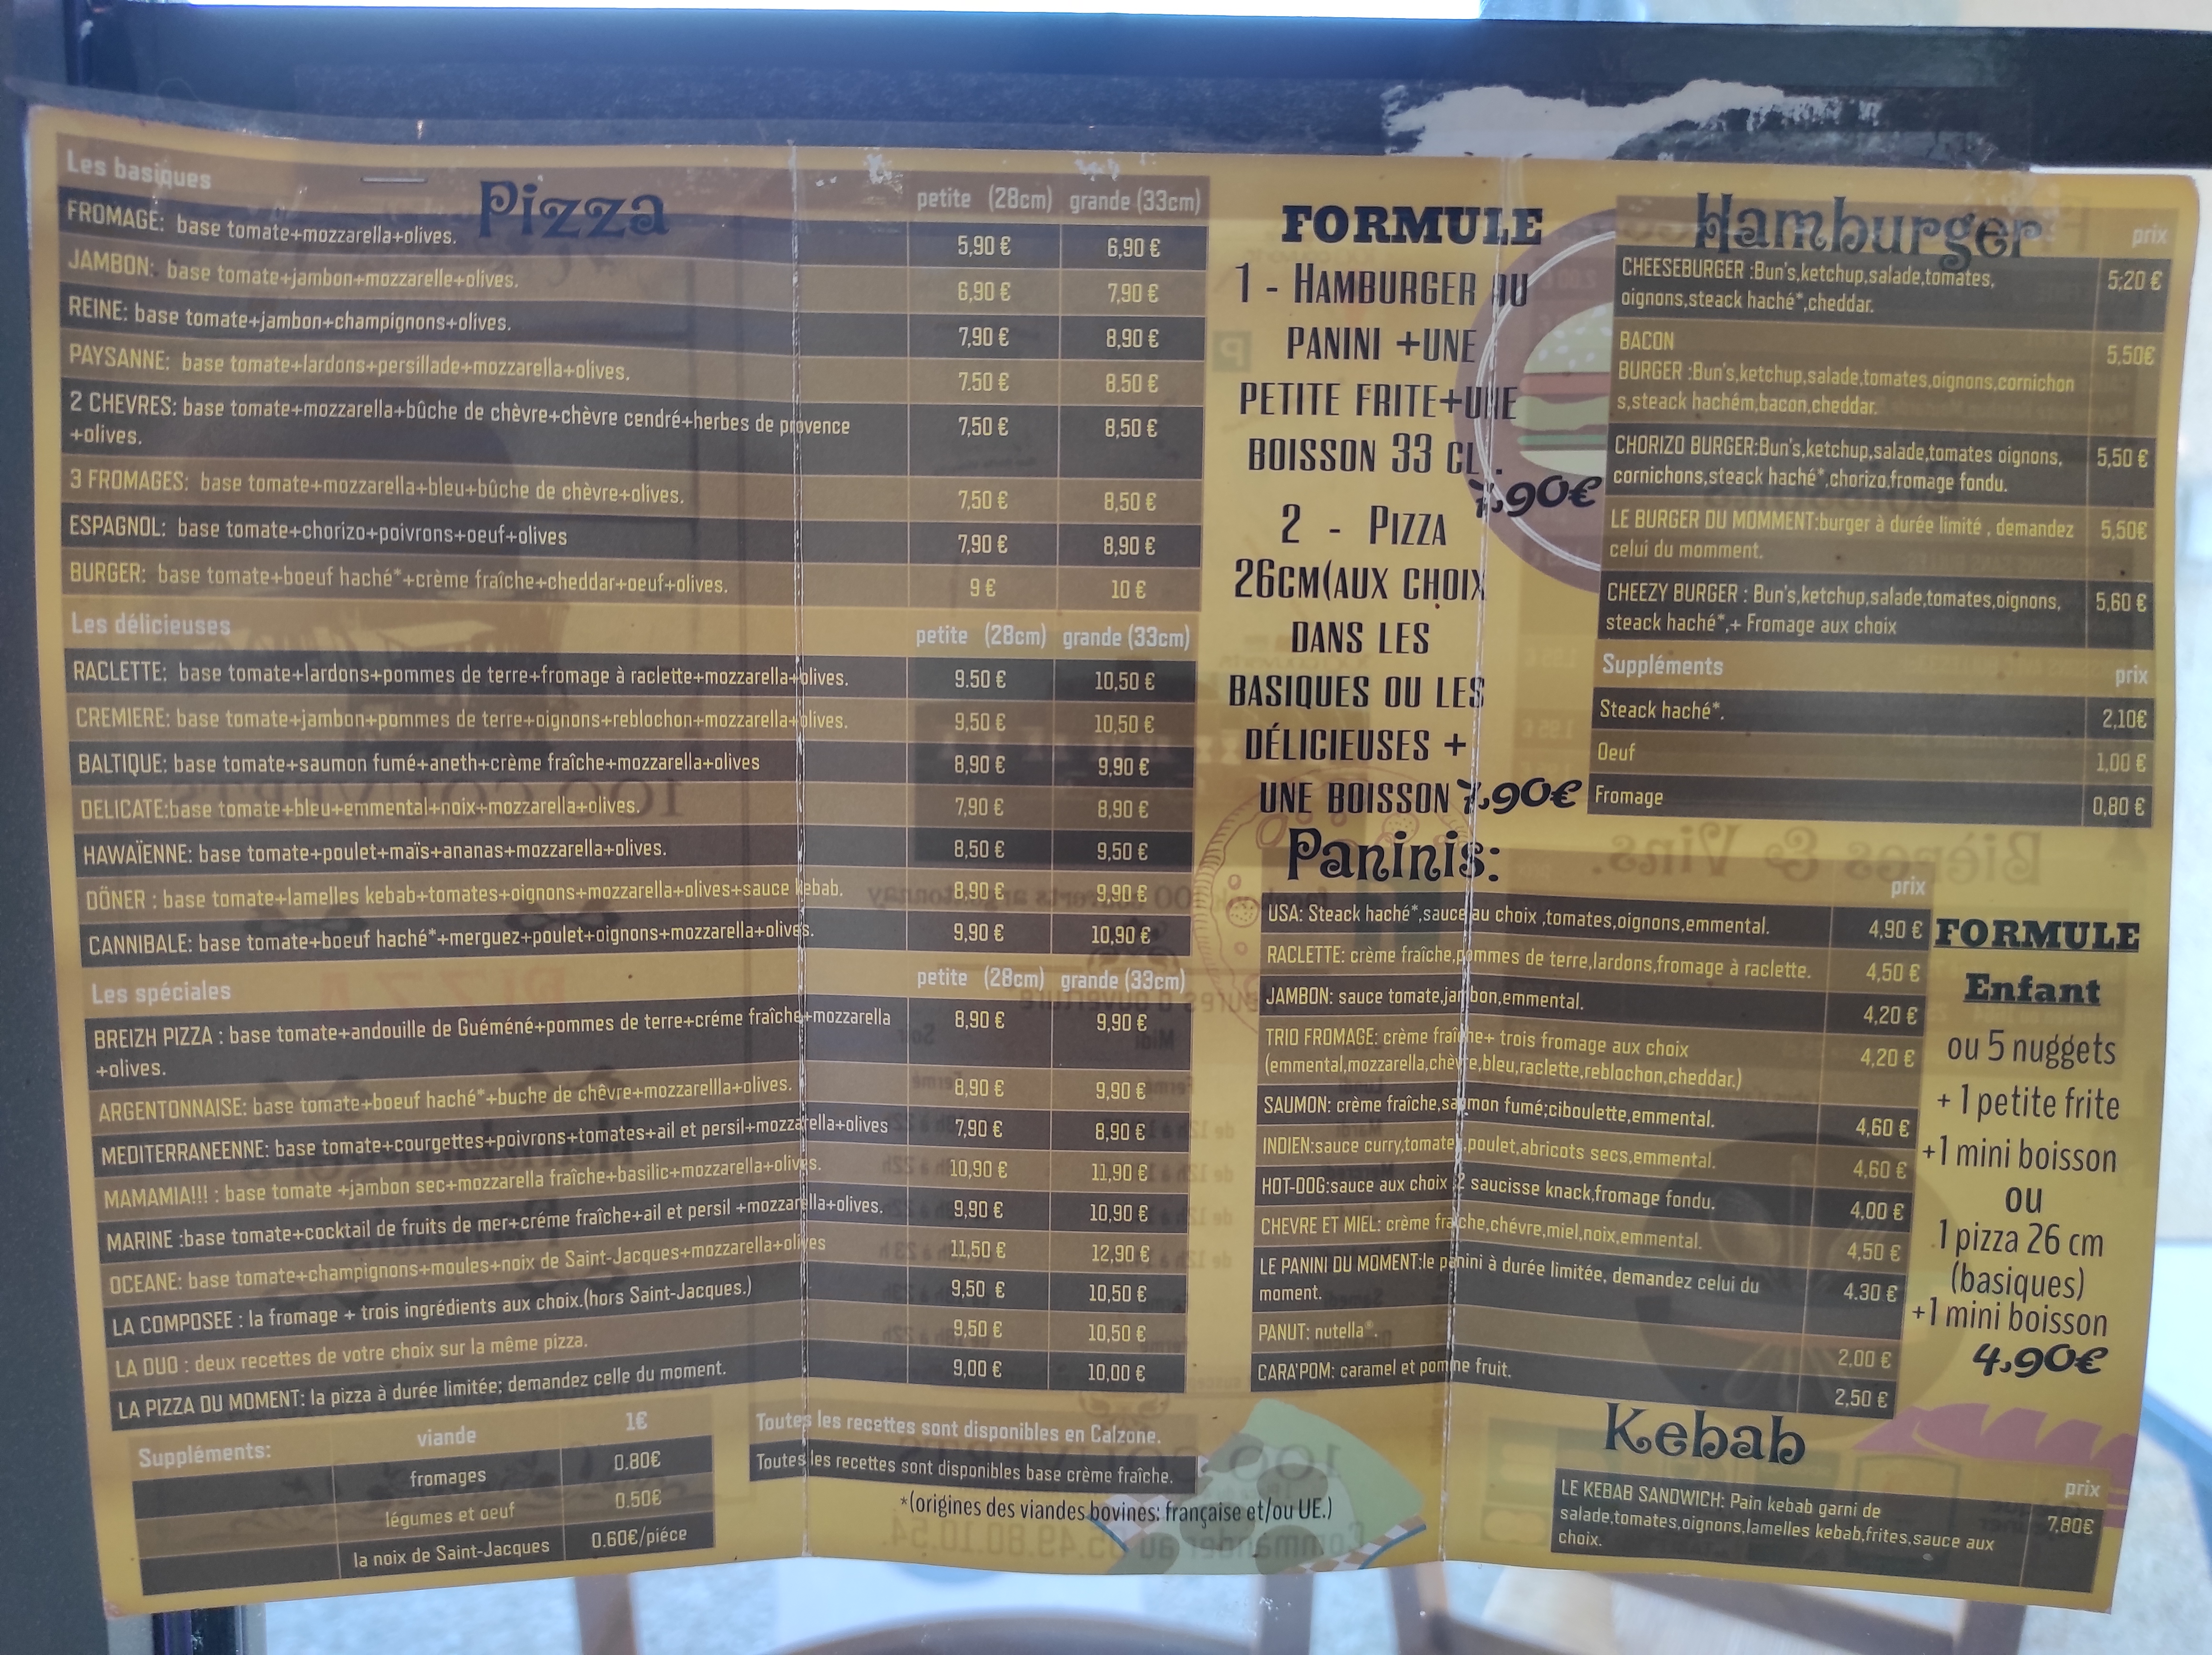 Pizza
Les basiques petite (28cm) grande (33cm)
FROMAGE: base tomate+mozzarella+olives. 5,90 € 6,90 €
JAMBON: base tomate+jambon+mozzarelle+olives. 6,90 € 7,90 €
REINE: base tomate+jambon+champignons+olives. 7,90 € 8,90 €
PAYSANNE: base tomate+lardons+persillade+mozzarella+olives. 7.50 € 8.50 €
2 CHEVRES: base tomate+mozzarella+bûche de chèvre+chèvre cendré+herbes de provence 7,50 € 8,50 €
+olives.
3 FROMAGES: base tomate+mozzarella+bleu+bûche de chèvre+olives. 7,50 € 8,50 €
ESPAGNOL: base tomate+chorizo+poivrons+oeuf+olives 7,90 € 8,90 €
BURGER: base tomate+boeuf haché*+crème fraîche+cheddar+oeuf+olives. 9 € 10 €
Les délicieuses petite (28cm) grande (33cm)
RACLETTE: base tomate+lardons+pommes de terre+fromage à raclette+mozzarella+olives. 9.50 € 10,50 €
CREMIERE: base tomate+jambon+pommes de terre+oignons+reblochon+mozzarella+olives. 9,50 € 10,50 €
BALTIQUE: base tomate+saumon fumé+aneth+crème fraîche+mozzarella+olives 8,90 € 9,90 €
DELICATE:base tomate+bleu+emmental+noix+mozzarella+olives. 7,90 € 8,90 €
HAWAÏENNE: base tomate+poulet+maïs+ananas+mozzarella+olives. 8,50 € 9,50 €
DÖNER : base tomate+lamelles kebab+tomates+oignons+mozzarella+olives+sauce kebab. 8,90 € 9,90 €
CANNIBALE: base tomate+boeuf haché*+merguez+poulet+oignons+mozzarella+olives. 9,90 € 10,90 €
Les spéciales petite (28cm) grande (33cm)
BREIZH PIZZA : base tomate+andouille de Guéméné+pommes de terre+créme fraîche+mozzarella 8,90 € 9,90 €
+olives.
ARGENTONNAISE: base tomate+boeuf haché*+buche de chêvre+mozzarellla+olives. 8,90 € 9,90 €
MEDITERRANEENNE: base tomate+courgettes+poivrons+tomates+ail et persil+mozzarella+olives 7,90 € 8,90 €
MAMAMIA!!! : base tomate +jambon sec+mozzarella fraîche+basilic+mozzarella+olives. 10,90 € 11,90 €
MARINE :base tomate+cocktail de fruits de mer+créme fraîche+ail et persil +mozzarella+olives. 9,90 € 10,90 €
OCEANE: base tomate+champignons+moules+noix de Saint-Jacques+mozzarella+olives 11,50 € 12,90 €
LA COMPOSEE : la fromage + trois ingrédients aux choix.(hors Saint-Jacques.) 9,50 € 10,50 €
LA DUO : deux recettes de votre choix sur la même pizza. 9,50 € 10,50 €
LA PIZZA DU MOMENT: la pizza à durée limitée; demandez celle du moment. 9,00 € 10,00 €
Suppléments: viande 1€
fromages 0.80€
légumes et oeuf 0.50€
la noix de Saint-Jacques 0.60€/piéce
Toutes les recettes sont disponibles en Calzone.
Toutes les recettes sont disponibles base crème fraîche.
*(origines des viandes bovines: française et/ou UE.)
FORMULE
1 - HAMBURGER AU
PANINI +UNE
PETITE FRITE+UNE
BOISSON 33 CL .
7,90€
2 - PIZZA
26CM(AUX CHOIX
DANS LES
BASIQUES OU LES
DÉLICIEUSES +
UNE BOISSON 7,90€
Hamburger
prix
CHEESEBURGER :Bun's,ketchup,salade,tomates, 5;20 €
oignons,steack haché*,cheddar.
BACON 5,50€
BURGER :Bun's,ketchup,salade,tomates,oignons,cornichon
s,steack hachém,bacon,cheddar.
CHORIZO BURGER:Bun's,ketchup,salade,tomates oignons, 5,50 €
cornichons,steack haché*,chorizo,fromage fondu.
LE BURGER DU MOMMENT:burger à durée limité , demandez 5,50€
celui du momment.
CHEEZY BURGER : Bun's,ketchup,salade,tomates,oignons, 5,60 €
steack haché*,+ Fromage aux choix
Suppléments prix
Steack haché*. 2,10€
Oeuf 1,00 €
Fromage 0,80 €
Paninis:
prix
USA: Steack haché*,sauce au choix ,tomates,oignons,emmental. 4,90 €
RACLETTE: crème fraîche,pommes de terre,lardons,fromage à raclette. 4,50 €
JAMBON: sauce tomate,jambon,emmental. 4,20 €
TRIO FROMAGE: crème fraîche+ trois fromage aux choix 4,20 €
(emmental,mozzarella,chèvre,bleu,raclette,reblochon,cheddar.)
SAUMON: crème fraîche,saumon fumé;ciboulette,emmental. 4,60 €
INDIEN:sauce curry,tomate,poulet,abricots secs,emmental. 4,60 €
HOT-DOG:sauce aux choix :2 saucisse knack,fromage fondu. 4,00 €
CHEVRE ET MIEL: crème fraîche,chévre,miel,noix,emmental. 4,50 €
LE PANINI DU MOMENT:le panini à durée limitée, demandez celui du 4.30 €
moment.
PANUT: nutella®. 2,00 €
CARA'POM: caramel et pomme fruit. 2,50 €
FORMULE
Enfant
ou 5 nuggets
+ 1 petite frite
+1 mini boisson
ou
1 pizza 26 cm
(basiques)
+1 mini boisson
4,90€
Kebab
prix
LE KEBAB SANDWICH: Pain kebab garni de 7,80€
salade,tomates,oignons,lamelles kebab,frites,sauce aux
choix.